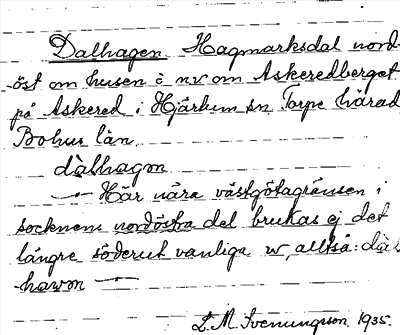 Dalhagen. Hagmarksdal nord-
öst om husen o. n.v. om Askeredberget
på Askered i Hjärtum sn. Torpe härad
Bohus län.
dàlhagən
— Här nära västgötagränsen i
socknens nordöstra del brukas ej det
längre söderut vanliga w, alltså: dàl-
hawən —
L. M. Svenungsson 1935.